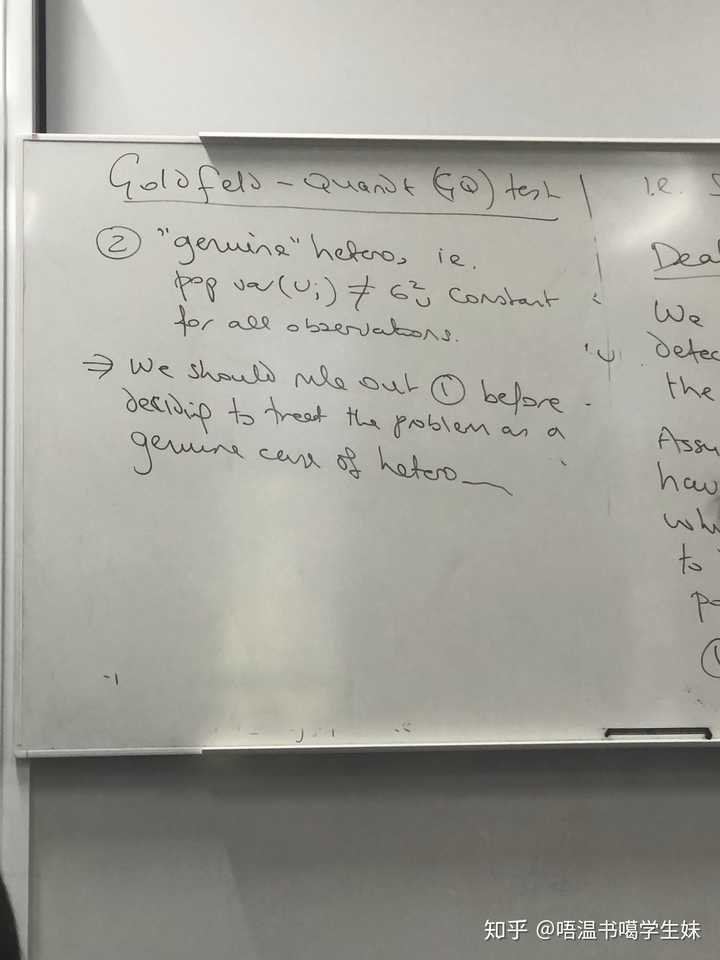 Goldfeld - Quandt (GQ) test
② "genuine" hetero, ie.
pop var(Ui) ≠ σ²u constant
for all observations.
⇒ We should rule out ① before
deciding to treat the problem as a
genuine case of hetero
i.e. S
Deal
We
detec
the
Assu
hav
whi
to
po
知乎 @唔温书噶学生妹